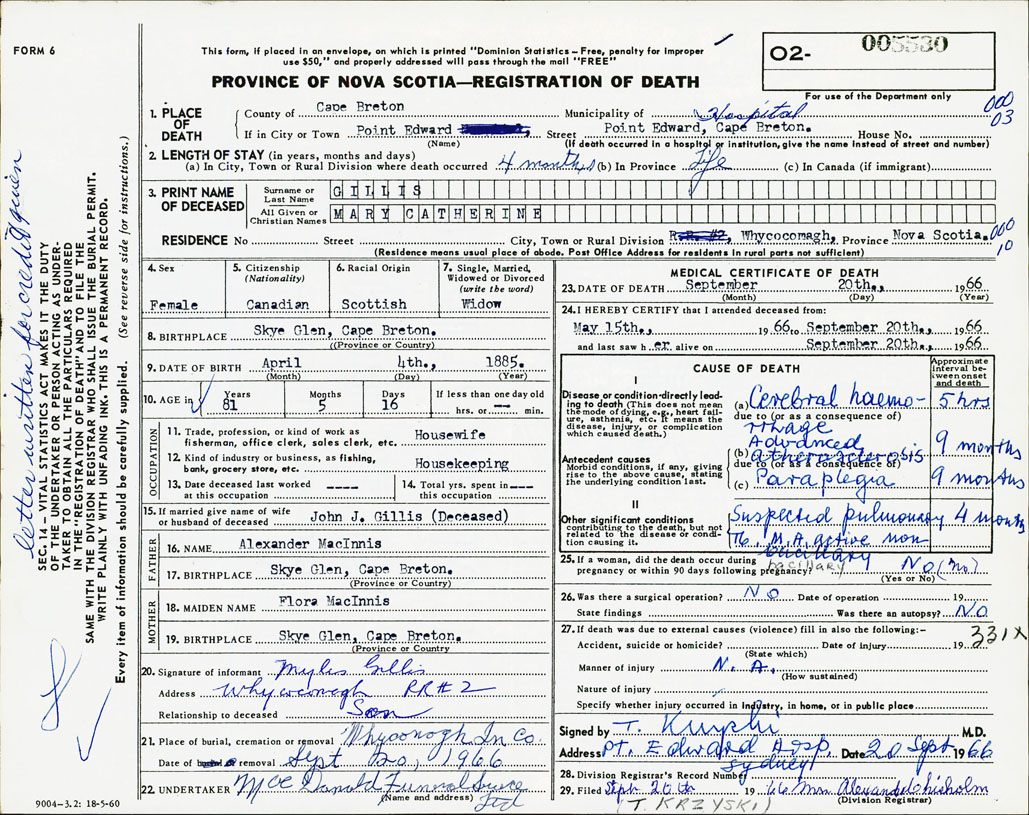 FORM 6
This form, if placed in an envelope, on which is printed "Dominion Statistics – Free, penalty for improper
use $50," and properly addressed will pass through the mail "FREE"
PROVINCE OF NOVA SCOTIA—REGISTRATION OF DEATH
02- 005530
For use of the Department only
000
03
1. PLACE OF DEATH
County of Cape Breton Municipality of Hospital
If in City or Town Point Edward Street Point Edward, Cape Breton. House No.
(Name) (If death occurred in a hospital or institution, give the name instead of street and number)
2. LENGTH OF STAY (in years, months and days)
(a) In City, Town or Rural Division where death occurred 4 months (b) In Province Life (c) In Canada (if immigrant)
3. PRINT NAME OF DECEASED
Surname or Last Name GILLIS
All Given or Christian Names MARY CATHERINE
RESIDENCE No Street City, Town or Rural Division R.R. #2, Whycocomagh, Province Nova Scotia.
000
10
(Residence means usual place of abode. Post Office Address for residents in rural parts not sufficient)
4. Sex
Female
5. Citizenship
(Nationality)
Canadian
6. Racial Origin
Scottish
7. Single, Married,
Widowed or Divorced
(write the word)
Widow
8. BIRTHPLACE Skye Glen, Cape Breton.
(Province or Country)
9. DATE OF BIRTH April 4th., 1885.
(Month) (Day) (Year)
10. AGE in Years Months Days If less than one day old
81 5 16 hrs. or --- min.
OCCUPATION
11. Trade, profession, or kind of work as
fisherman, office clerk, sales clerk, etc. Housewife
12. Kind of industry or business, as fishing,
bank, grocery store, etc. Housekeeping
13. Date deceased last worked
at this occupation ----
14. Total yrs. spent in
this occupation ----
15. If married give name of wife
or husband of deceased John J. Gillis (Deceased)
FATHER
16. NAME Alexander MacInnis
17. BIRTHPLACE Skye Glen, Cape Breton.
(Province or Country)
MOTHER
18. MAIDEN NAME Flora MacInnis
19. BIRTHPLACE Skye Glen, Cape Breton.
(Province or Country)
20. Signature of informant Myles Gillis
Address Whycocomagh RR#2
Relationship to deceased Son
21. Place of burial, cremation or removal Whyconogh In Co.
Date of removal Sept 20, 1966
22. UNDERTAKER MacDonald Funeral Service
(Name and address) Ltd
9004-3.2: 18-5-60
MEDICAL CERTIFICATE OF DEATH
23. DATE OF DEATH September 20th., 1966
(Month) (Day) (Year)
24. I HEREBY CERTIFY that I attended deceased from:
May 15th., 1966 to September 20th., 1966
and last saw her alive on September 20th., 1966
CAUSE OF DEATH
Approximate
interval be-
tween onset
and death
I
Disease or condition directly lead-
ing to death (This does not mean
the mode of dying, e.g., heart fail-
ure, asthenia, etc. It means the
disease, injury, or complication
which caused death.)
(a) Cerebral haemo- 5 hrs
due to (or as a consequence of)
rrhage
Antecedent causes
Morbid conditions, if any, giving
rise to the above cause, stating
the underlying condition last.
Advanced
(b) Atherosclerosis 9 months
due to (or as a consequence of)
(c) Paraplegia 9 months
II
Other significant conditions
contributing to the death, but not
related to the disease or condi-
tion causing it.
Suspected pulmonary 4 months
Tb. M.A. active non
bacillary
bacillary
25. If a woman, did the death occur during
pregnancy or within 90 days following pregnancy? No (no)
(Yes or No)
26. Was there a surgical operation? No Date of operation 19
State findings Was there an autopsy? No
27. If death was due to external causes (violence) fill in also the following:–
331X
Accident, suicide or homicide? Date of injury 19
(State which)
Manner of injury N. A.
(How sustained)
Nature of injury
Specify whether injury occurred in industry, in home, or in public place
Signed by T. M.D.
Address Pt. Edward Hosp. Date 20 Sept 1966
Sydney
28. Division Registrar's Record Number
29. Filed Sept 20th 1966 Mrs. Alexander Chisholm
(Division Registrar)
(T. KRZYSKI)
letter written for credit given
SEC. 14 – VITAL STATISTICS ACT MAKES IT THE DUTY
OF THE UNDERTAKER OR PERSON ACTING AS UNDER-
TAKER TO OBTAIN ALL THE PARTICULARS REQUIRED
IN THE "REGISTRATION OF DEATH" AND TO FILE THE
SAME WITH THE DIVISION REGISTRAR WHO SHALL ISSUE THE BURIAL PERMIT.
WRITE PLAINLY WITH UNFADING INK. THIS IS A PERMANENT RECORD.
Every item of information should be carefully supplied. (See reverse side for instructions.)